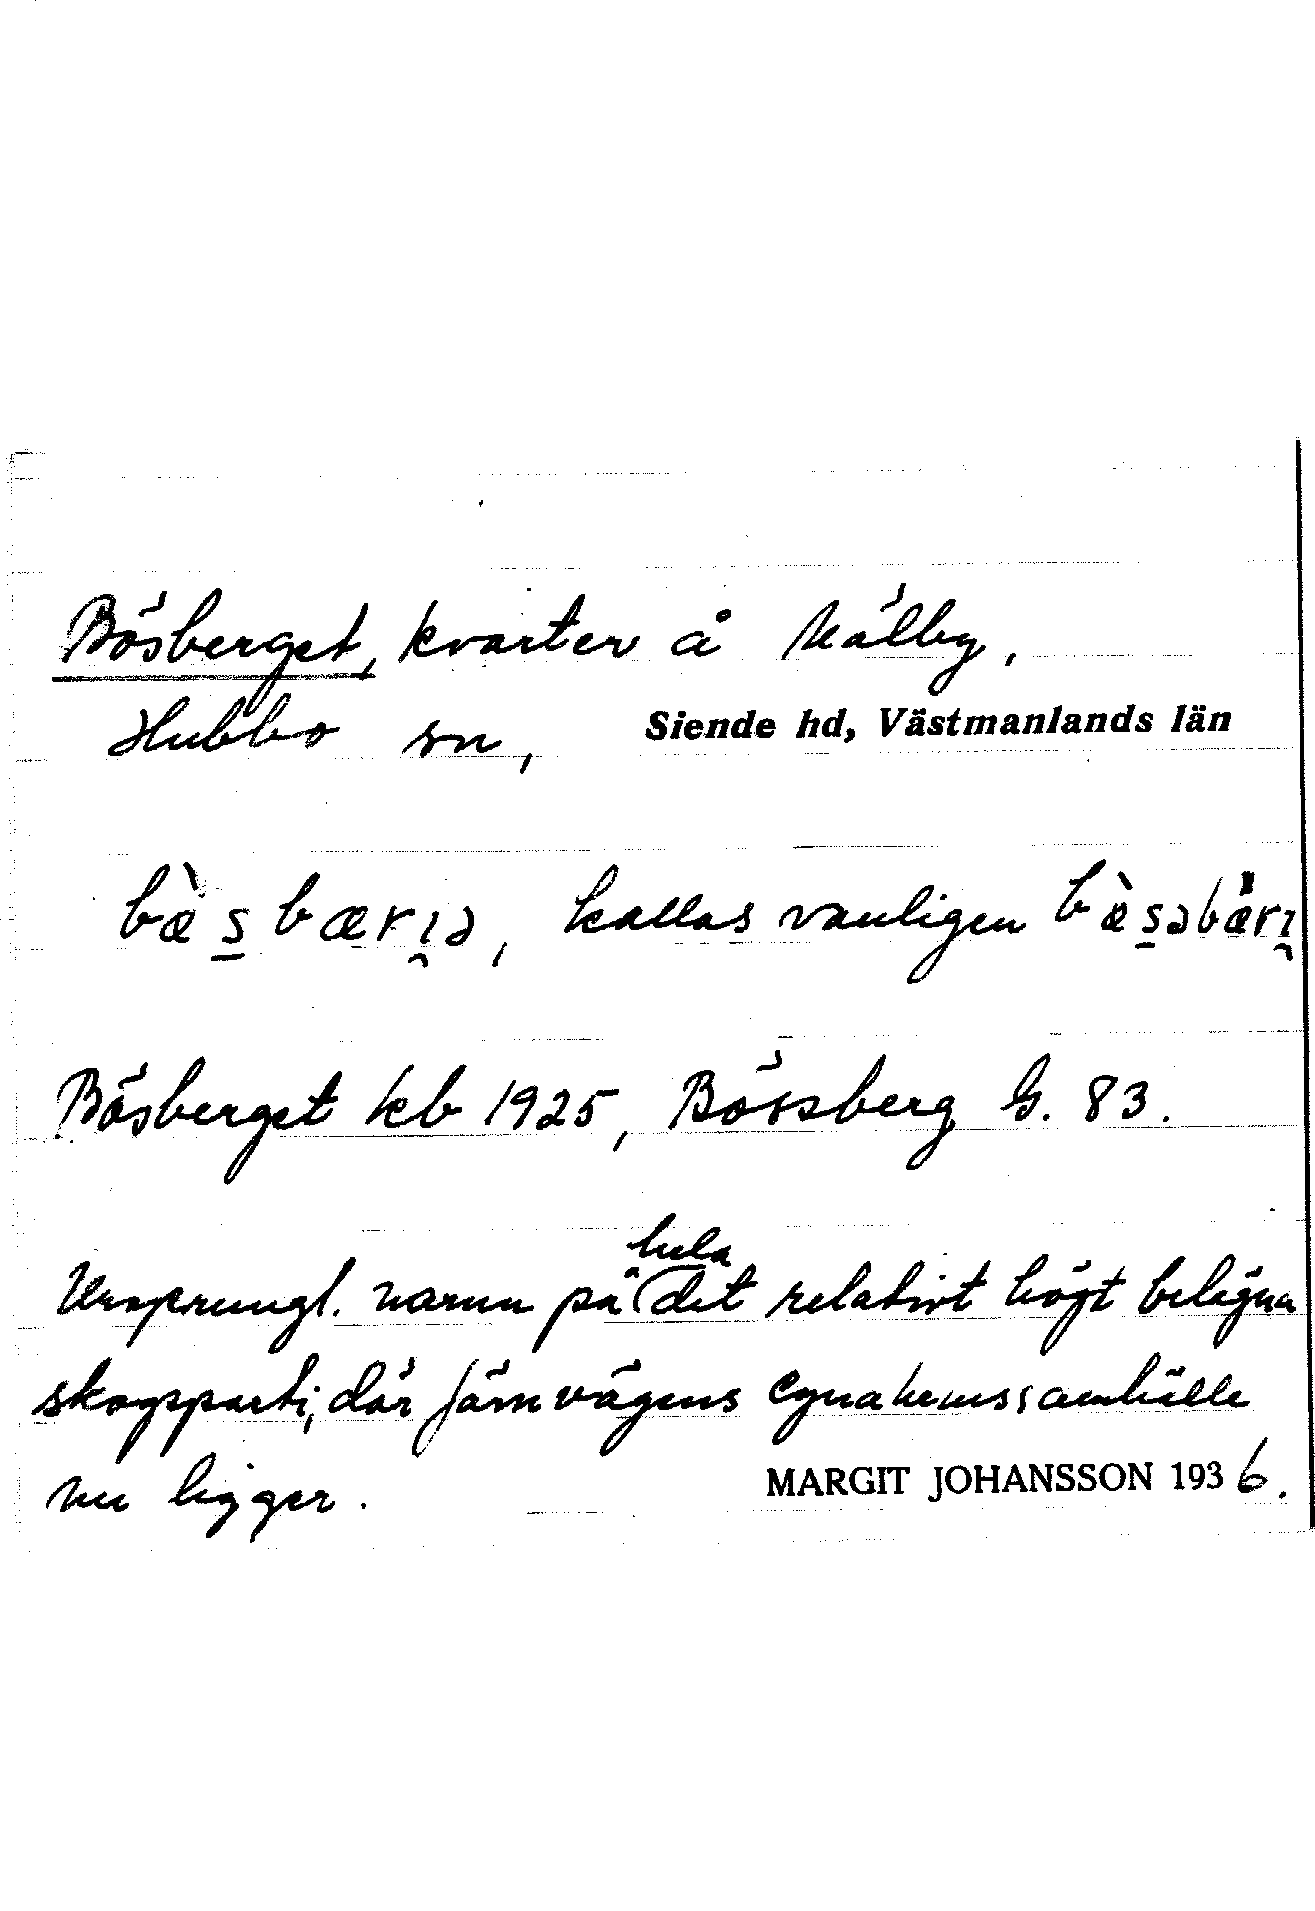 Bösberget, kvarter å Målby,
Hubbo sn, Siende hd, Västmanlands län
kallas vanligen
Bösberget kb 1925, Bössberg G. 83.
hela
Ursprungl. namn på det relativt högt belägna
skogsparti, där järnvägens egnahemssamhälle
nu ligger. MARGIT JOHANSSON 1936.